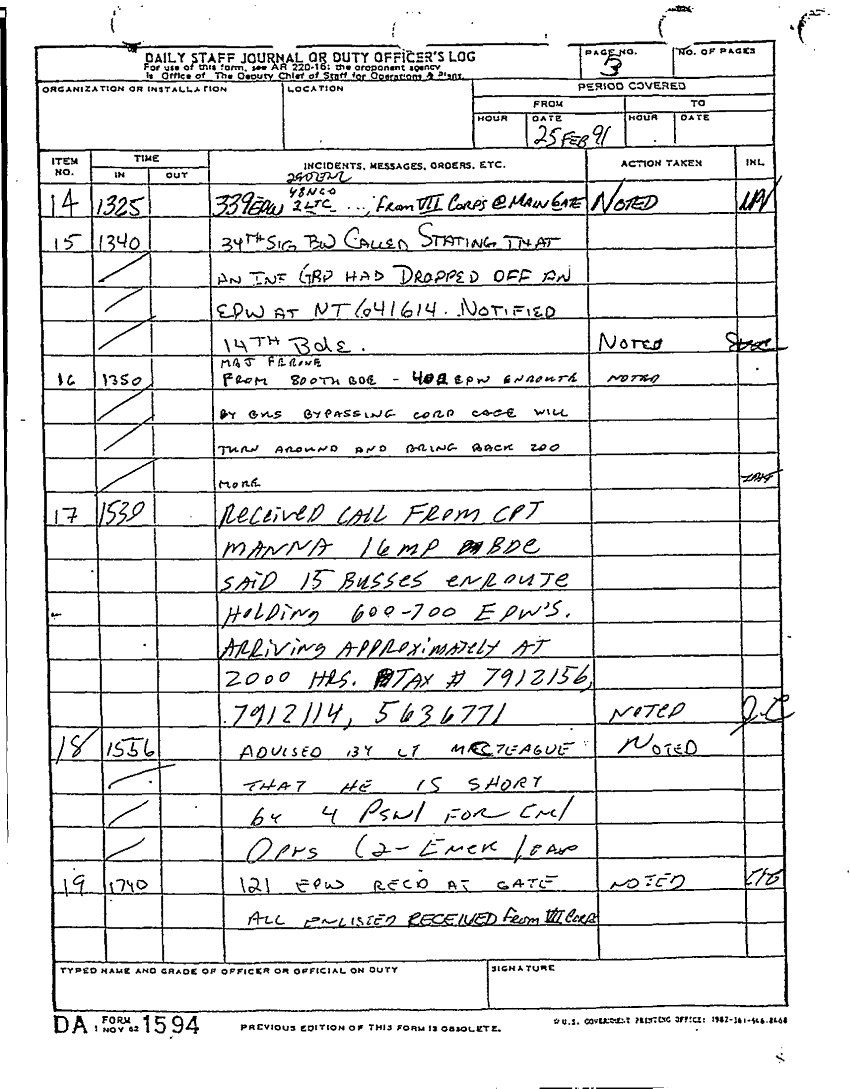 DAILY STAFF JOURNAL OR DUTY OFFICER'S LOG
For use of this form, see AR 220-15; the proponent agency
is Office of The Deputy Chief of Staff for Operations & Plans.
PAGE NO.
3
NO. OF PAGES
ORGANIZATION OR INSTALLATION
LOCATION
PERIOD COVERED
FROM
TO
HOUR
DATE
25 FEB 91
HOUR
DATE
ITEM NO.
TIME
IN
OUT
INCIDENTS, MESSAGES, ORDERS, ETC.
ACTION TAKEN
INL
48 NCO
14 1325 339 EPW 2 LTC ..., From VII Corps @ MAIN GATE NOTED
15 1340 34TH SIG BN CALLED STATING THAT
AN INF GRP HAD DROPPED OFF AN
EPW AT NT 641614. NOTIFIED
14TH Bde. NOTED
MAJ FERONE
16 1350 FROM 800TH BDE - 402 EPW ENROUTE NOTED
BY BUS BYPASSING CORP CAGE WILL
TURN AROUND AND BRING BACK 200
MORE
17 1530 RECEIVED CALL FROM CPT
MANNA 16 MP BDE
SAID 15 BUSSES ENROUTE
HOLDING 600-700 EPW'S.
ARRIVING APPROXIMATELY AT
2000 HRS. TAX # 7912156,
7912114, 5636771 NOTED J.C
18 1556 ADVISED BY LT MACTEAGUE NOTED
THAT HE IS SHORT
by 4 PSNL FOR
OPNS (2-
19 1740 121 EPW REC'D AT GATE NOTED
ALL ENLISTED RECEIVED From VII Corps
TYPED NAME AND GRADE OF OFFICER OR OFFICIAL ON DUTY
SIGNATURE
DA FORM 1 NOV 62 1594
PREVIOUS EDITION OF THIS FORM IS OBSOLETE.
U.S. GOVERNMENT PRINTING OFFICE: 1982-361-646-8468